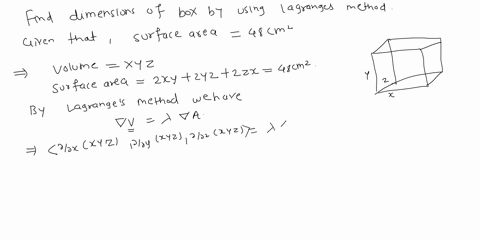 Find dimensions of box by using lagranges method.
Given that, surface area = 48 cm²
⇒ Volume = xyz
Surface area = 2xy + 2yz + 2zx = 48cm².
By Lagrange's method we have
∇V = λ ∇A.
⇒ <∂/∂x (xyz), ∂/∂y (xyz), ∂/∂z (xyz)> = λ <
y
z
x